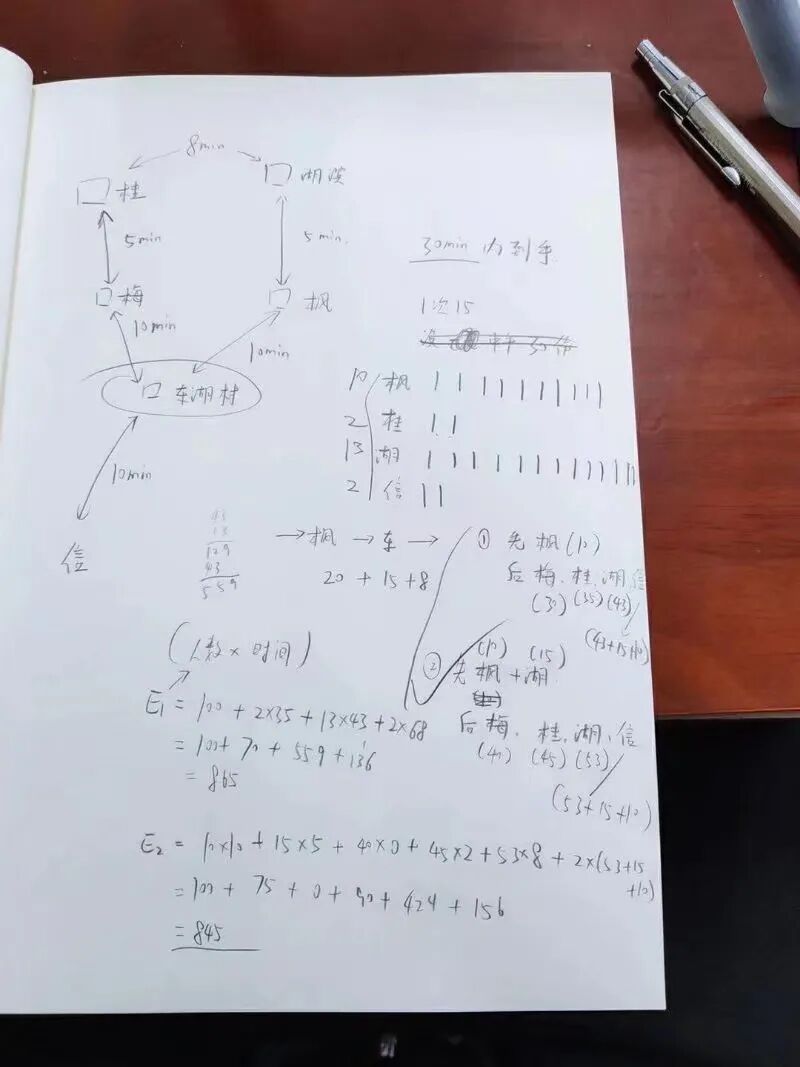 8min
桂
湖滨
5min
5min.
梅
枫
10min
10min
车湖村
10min
信
30min 内到手
1次15
10 枫
2 桂
13 湖
2 信
43
13
129
43
559
→枫 → 车 →
20 + 15 + 8
① 先枫(10)
后梅、桂、湖、信
(30) (35) (43)
(43+15+10)
(10) (15)
② 先枫 + 湖
后梅、桂、湖、信
(40) (45) (53)
(53+15+10)
(人数 × 时间)
E1 = 100 + 2×35 + 13×43 + 2×68
= 100 + 70 + 559 + 136
= 865
E2 = 10×10 + 15×5 + 40×0 + 45×2 + 53×8 + 2×(53+15
+10)
= 100 + 75 + 0 + 90 + 424 + 156
= 845